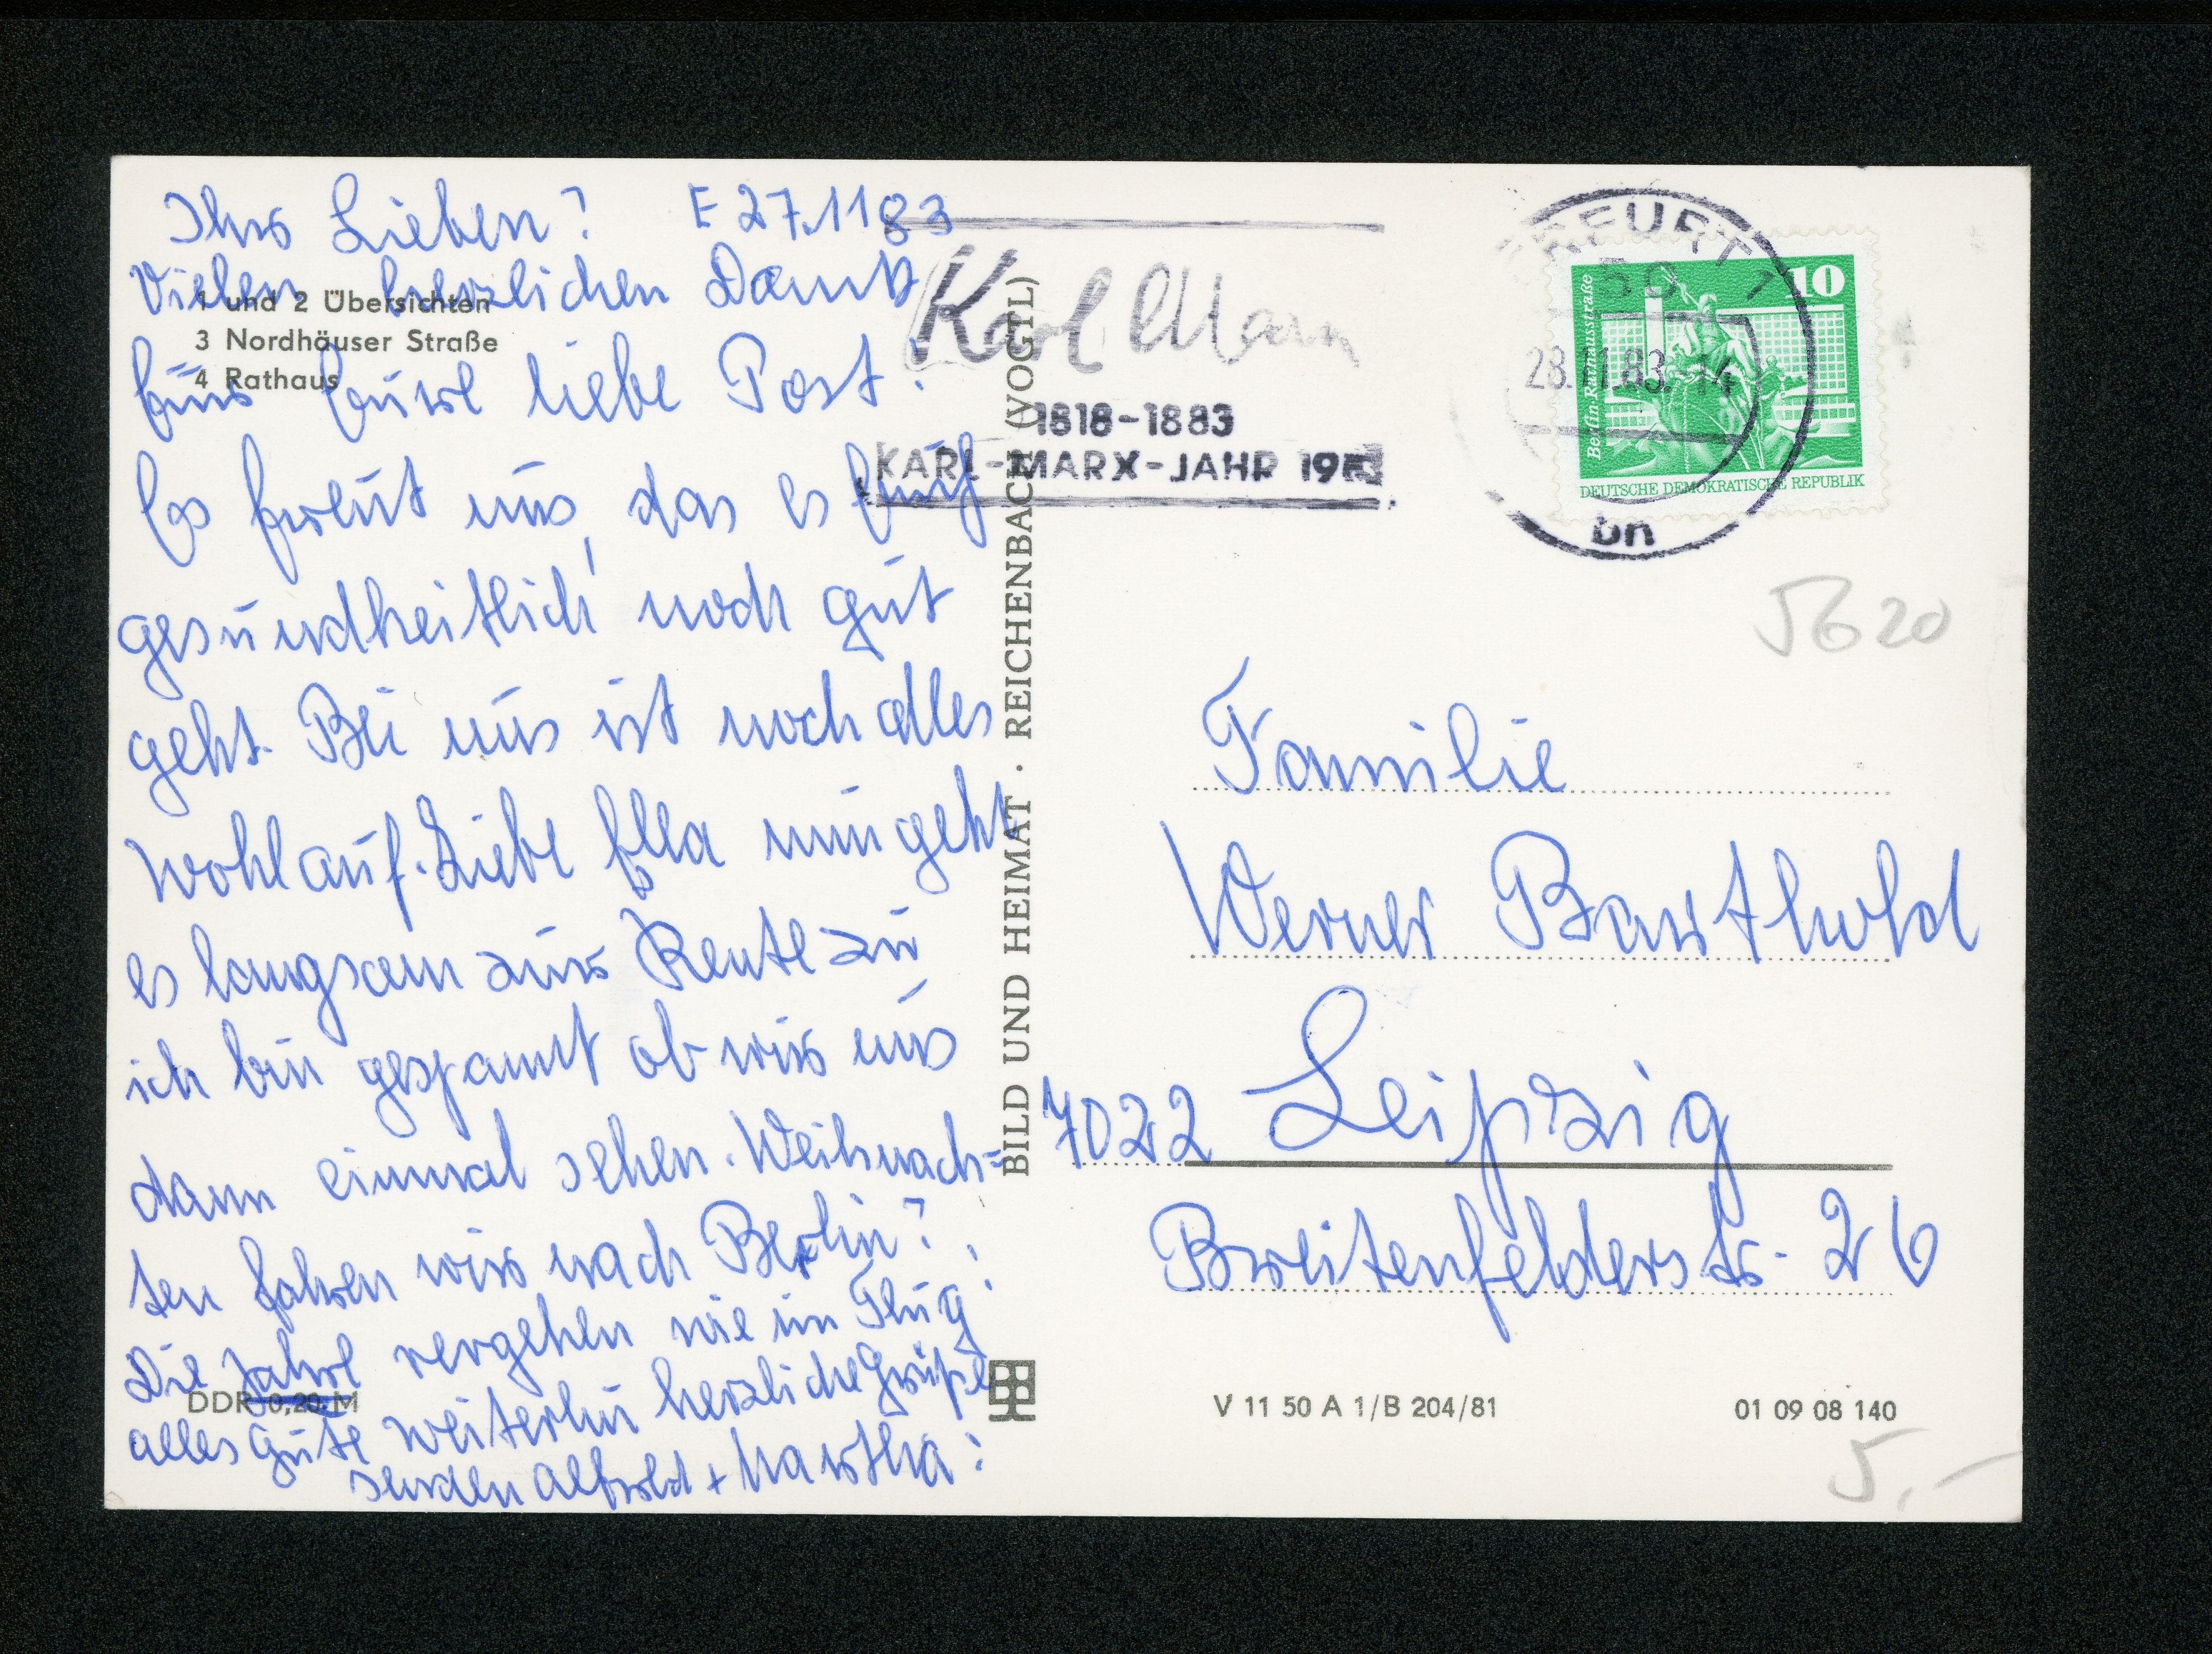 Ihr Lieben! E 27.11 83
Vielen herzlichen Dank
für Eure liebe Post!
Es freut uns, das es Euch
gesundheitlich noch gut
geht. Bei uns ist noch alles
wohlauf. Liebe Ella nun geht
es langsam zur Rente zu
ich bin gespannt ob wir uns
dann einmal sehen. Weihnach=
ten fahren wir nach Berlin!
Die Jahre vergehen wie im Flug!
alles Gute weiterhin herzliche Grüße
senden Alfred + Martha!
1 und 2 Übersichten
3 Nordhäuser Straße
4 Rathaus
DDR 0,20 M
BILD UND HEIMAT · REICHENBACH (VOGTL)
Karl Marx
1818-1883
KARL-MARX-JAHR 1983
ERFURT 1
50
28.11.83. 14
bn
10
Berlin-Rathausstraße
DEUTSCHE DEMOKRATISCHE REPUBLIK
5620
Familie
Werner Barthold
7022 Leipzig
Breitenfelderstr. 26
V 11 50 A 1/B 204/81
01 09 08 140
5,-